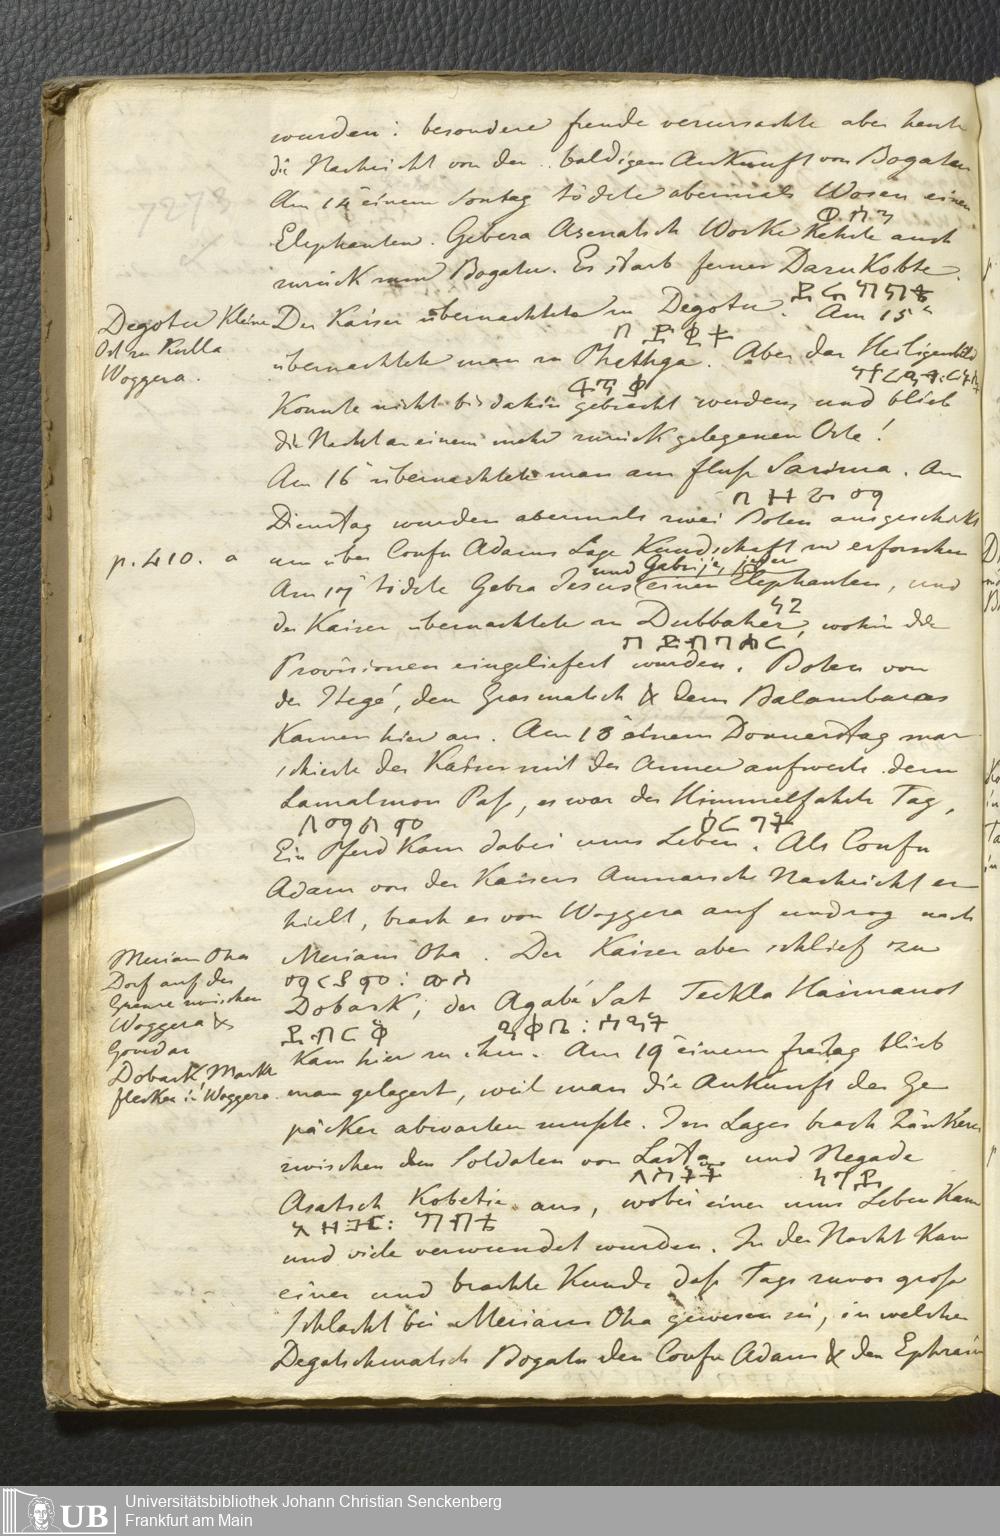 wurden: besondere freude verursachte aber heute
die Nachricht von der baldigen Ankunft von Bogatu
Am 14 einem Sontag tödete abermals Wosen einen
Elephanten. Gebera Asenatsch Worke Kehrte auch
zurück zum Bogatu. Es starb ferner Daru Kobte.
Degotu Kleiner
Ort zu Kulla
Woggera.
Der Kaiser übernachtete zu Degotu. Am 15
übernachtete man zu Phethga. Aber das Heiligenbild
Konnte nicht bis dahin gebracht werden, und blieb
die Nacht an einem mehr zurück gelegenen Orte!
Am 16 übernachtete man am fluß Sarima. Am
Dienstag wurden abermals zwei Boten ausgeschickt
p. 410. a
um über Confu Adams Lage Kundschaft zu erforschen
und Gabrije, jeder
Am 17 tödete Gebra Jesus einen Elephanten, und
der Kaiser übernachtete zu Dubbaher, wohin die
Provisionen eingeliefert wurden. Boten von
der Itegé, dem Grasmatsch & dem Balambaras
Kamen hier an. Am 18 einem Donnerstag mar
schierte der Kaiser mit der Armee aufwerts dem
Lamalmon Paß, es war der Himmelfahrts Tag,
Ein Pferd Kam dabei ums Leben. Als Confu
Adam von des Kaisers Anmarsche Nachricht er
hielt, brach er von Woggera auf und zog nach
Meriam Oha
Dorf auf der
Grenze zwischen
Woggera &
Gondar
Meriam Oha. Der Kaiser aber schlief zu
ማርያም: ውሃ
Dobark; der Agabé Sat Teckla Haimanot
ደባርቅ
Dobark, Markt
flecken in Woggera.
Kam hier zu ihm. Am 19 einem freitag blieb
man gelagert, weil man die Ankunft der Ge
päcker abwarten mußte. Im Lager brach Zänkerei
zwischen den Soldaten von Lasta und Negade
ላስታ ነጋዴ
Asatsch Kobetie aus, wobei einer ums Leben Kam
und viele verwundet wurden. In der Nacht Kam
einer und brachte Kunde daß Tags zuvor große
Schlacht bei Meriam Oha gewesen sei, in welcher
Degatschmatsch Bogatu den Confu Adam & den Ephraim
UB
Universitätsbibliothek Johann Christian Senckenberg
Frankfurt am Main